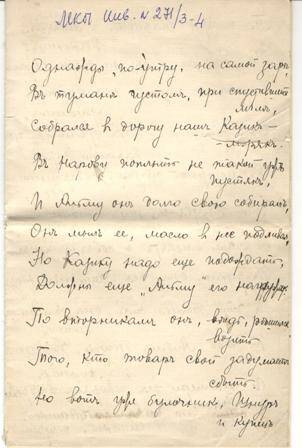 МКЫ инв. № 271/3-4
Однажды, по-утру, на самой зарѣ
Въ туманѣ густомъ, при спустившей
мглѣ,
Собрался въ дорогу нашъ Казикъ-
-морякъ.
Въ Нарову попасть не такой ужъ
пустякъ,
И Антму онъ долго свою собиралъ,
Онъ мылъ ее, масло въ нее подливалъ,
Но Казику надо еще подождать,
Должны еще „Антму" его нагружать
По вторникамъ онъ, вѣдь,
возитъ
Того, кто товаръ свой задумалъ
сбыть.
Но вотъ ужъ булочникъ, Шнуръ
и Купецъ